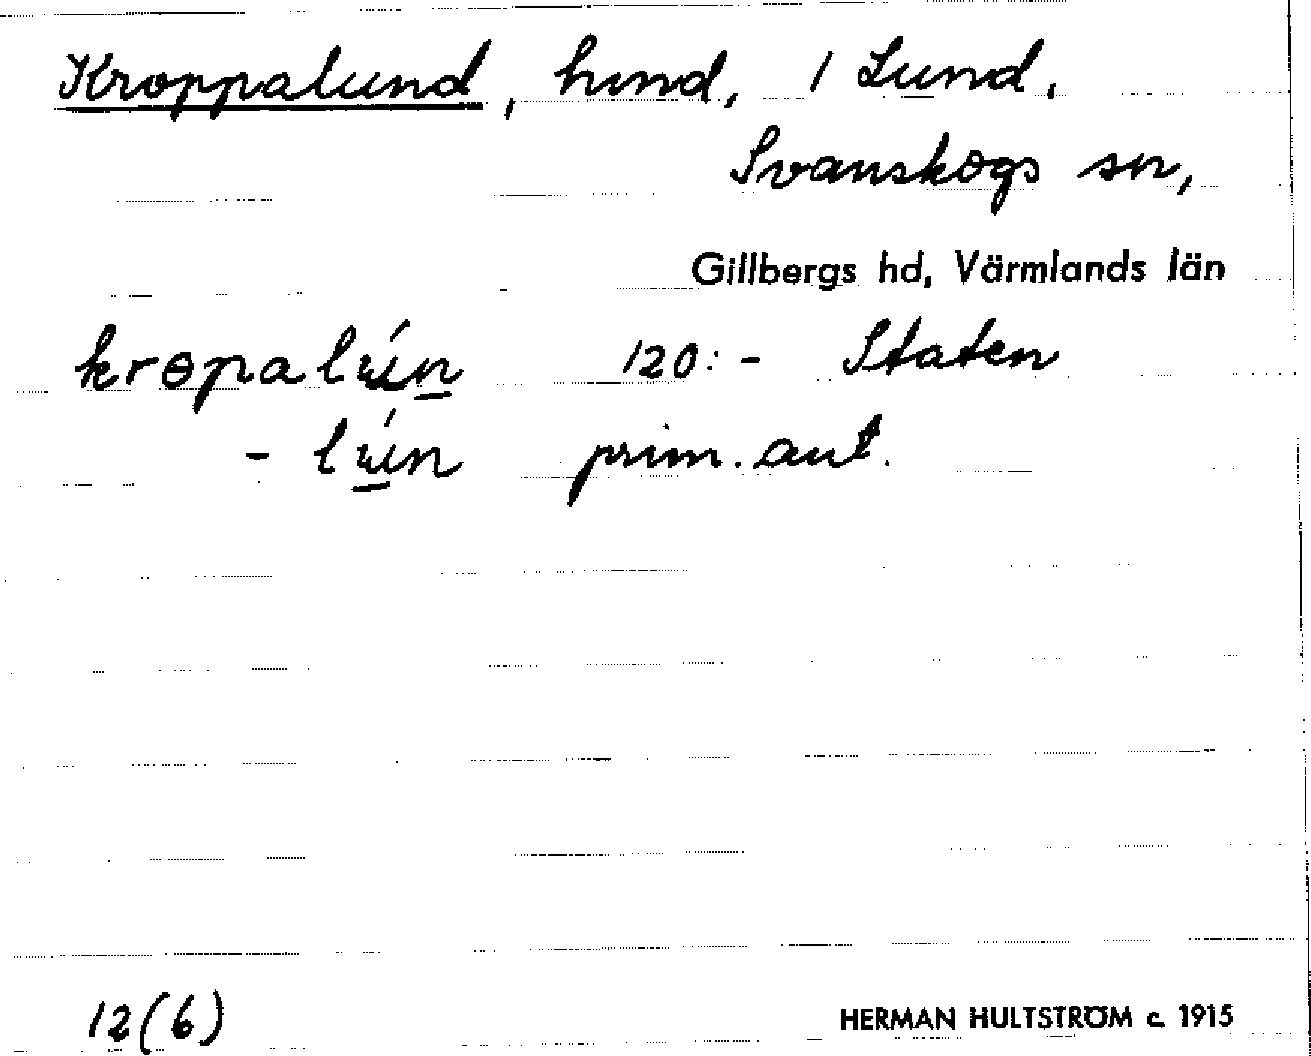 Kroppalund, hmd, 1 Lund.
Svanskogs sn,
Gillbergs hd, Värmlands län
krɵpalún 120:- Staten
- lún prim. aut.
12(6) HERMAN HULTSTRÖM c. 1915